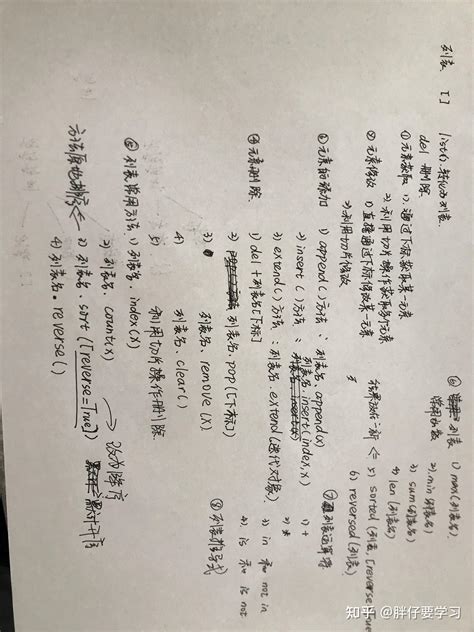 列表 []
list() 转化为列表.
del 删除
① 元素获取 1) 通过下标获取某一元素
2) 利用切片操作获取多个元素
② 元素修改 1) 直接通过下标修改某一元素
2) 利用切片修改
③ 元素的添加 1) append() 方法: 列表名.append(x)
2) insert() 方法: 列表名.insert(index,x)
3) extend() 方法: 列表名.extend(迭代对象)
④ 元素删除 1) del + 列表名[下标]
2) 列表名.pop([下标])
3) 列表名.remove(x)
4) 列表名.clear()
5) 利用切片操作删除.
⑤ 列表常用方法 1) 列表名.index(x)
2) 列表名.count(x)
方法原地排序 <= 3) 列表名.sort([reverse=True]) 改成降序
默认升序
4) 列表名.reverse()
⑥ 列表常用函数 1) max(列表名)
2) min(列表名)
3) sum(列表名)
4) len(列表名)
<= 5) sorted(列表,[reverse=True
6) reversed(列表)
⑦ 列表运算符 1) +
2) *
3) in 和 not in
4) is 和 is not
⑧ 列表推导式
知乎 @胖仔要学习